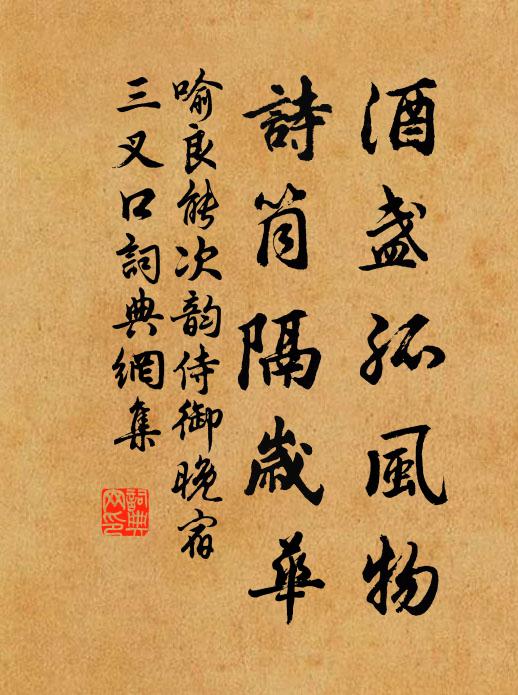 酒盞孤風物
詩筒隔歲華
喻良能次韵侍御晚宿
三叉口詞典網集
詞典網印